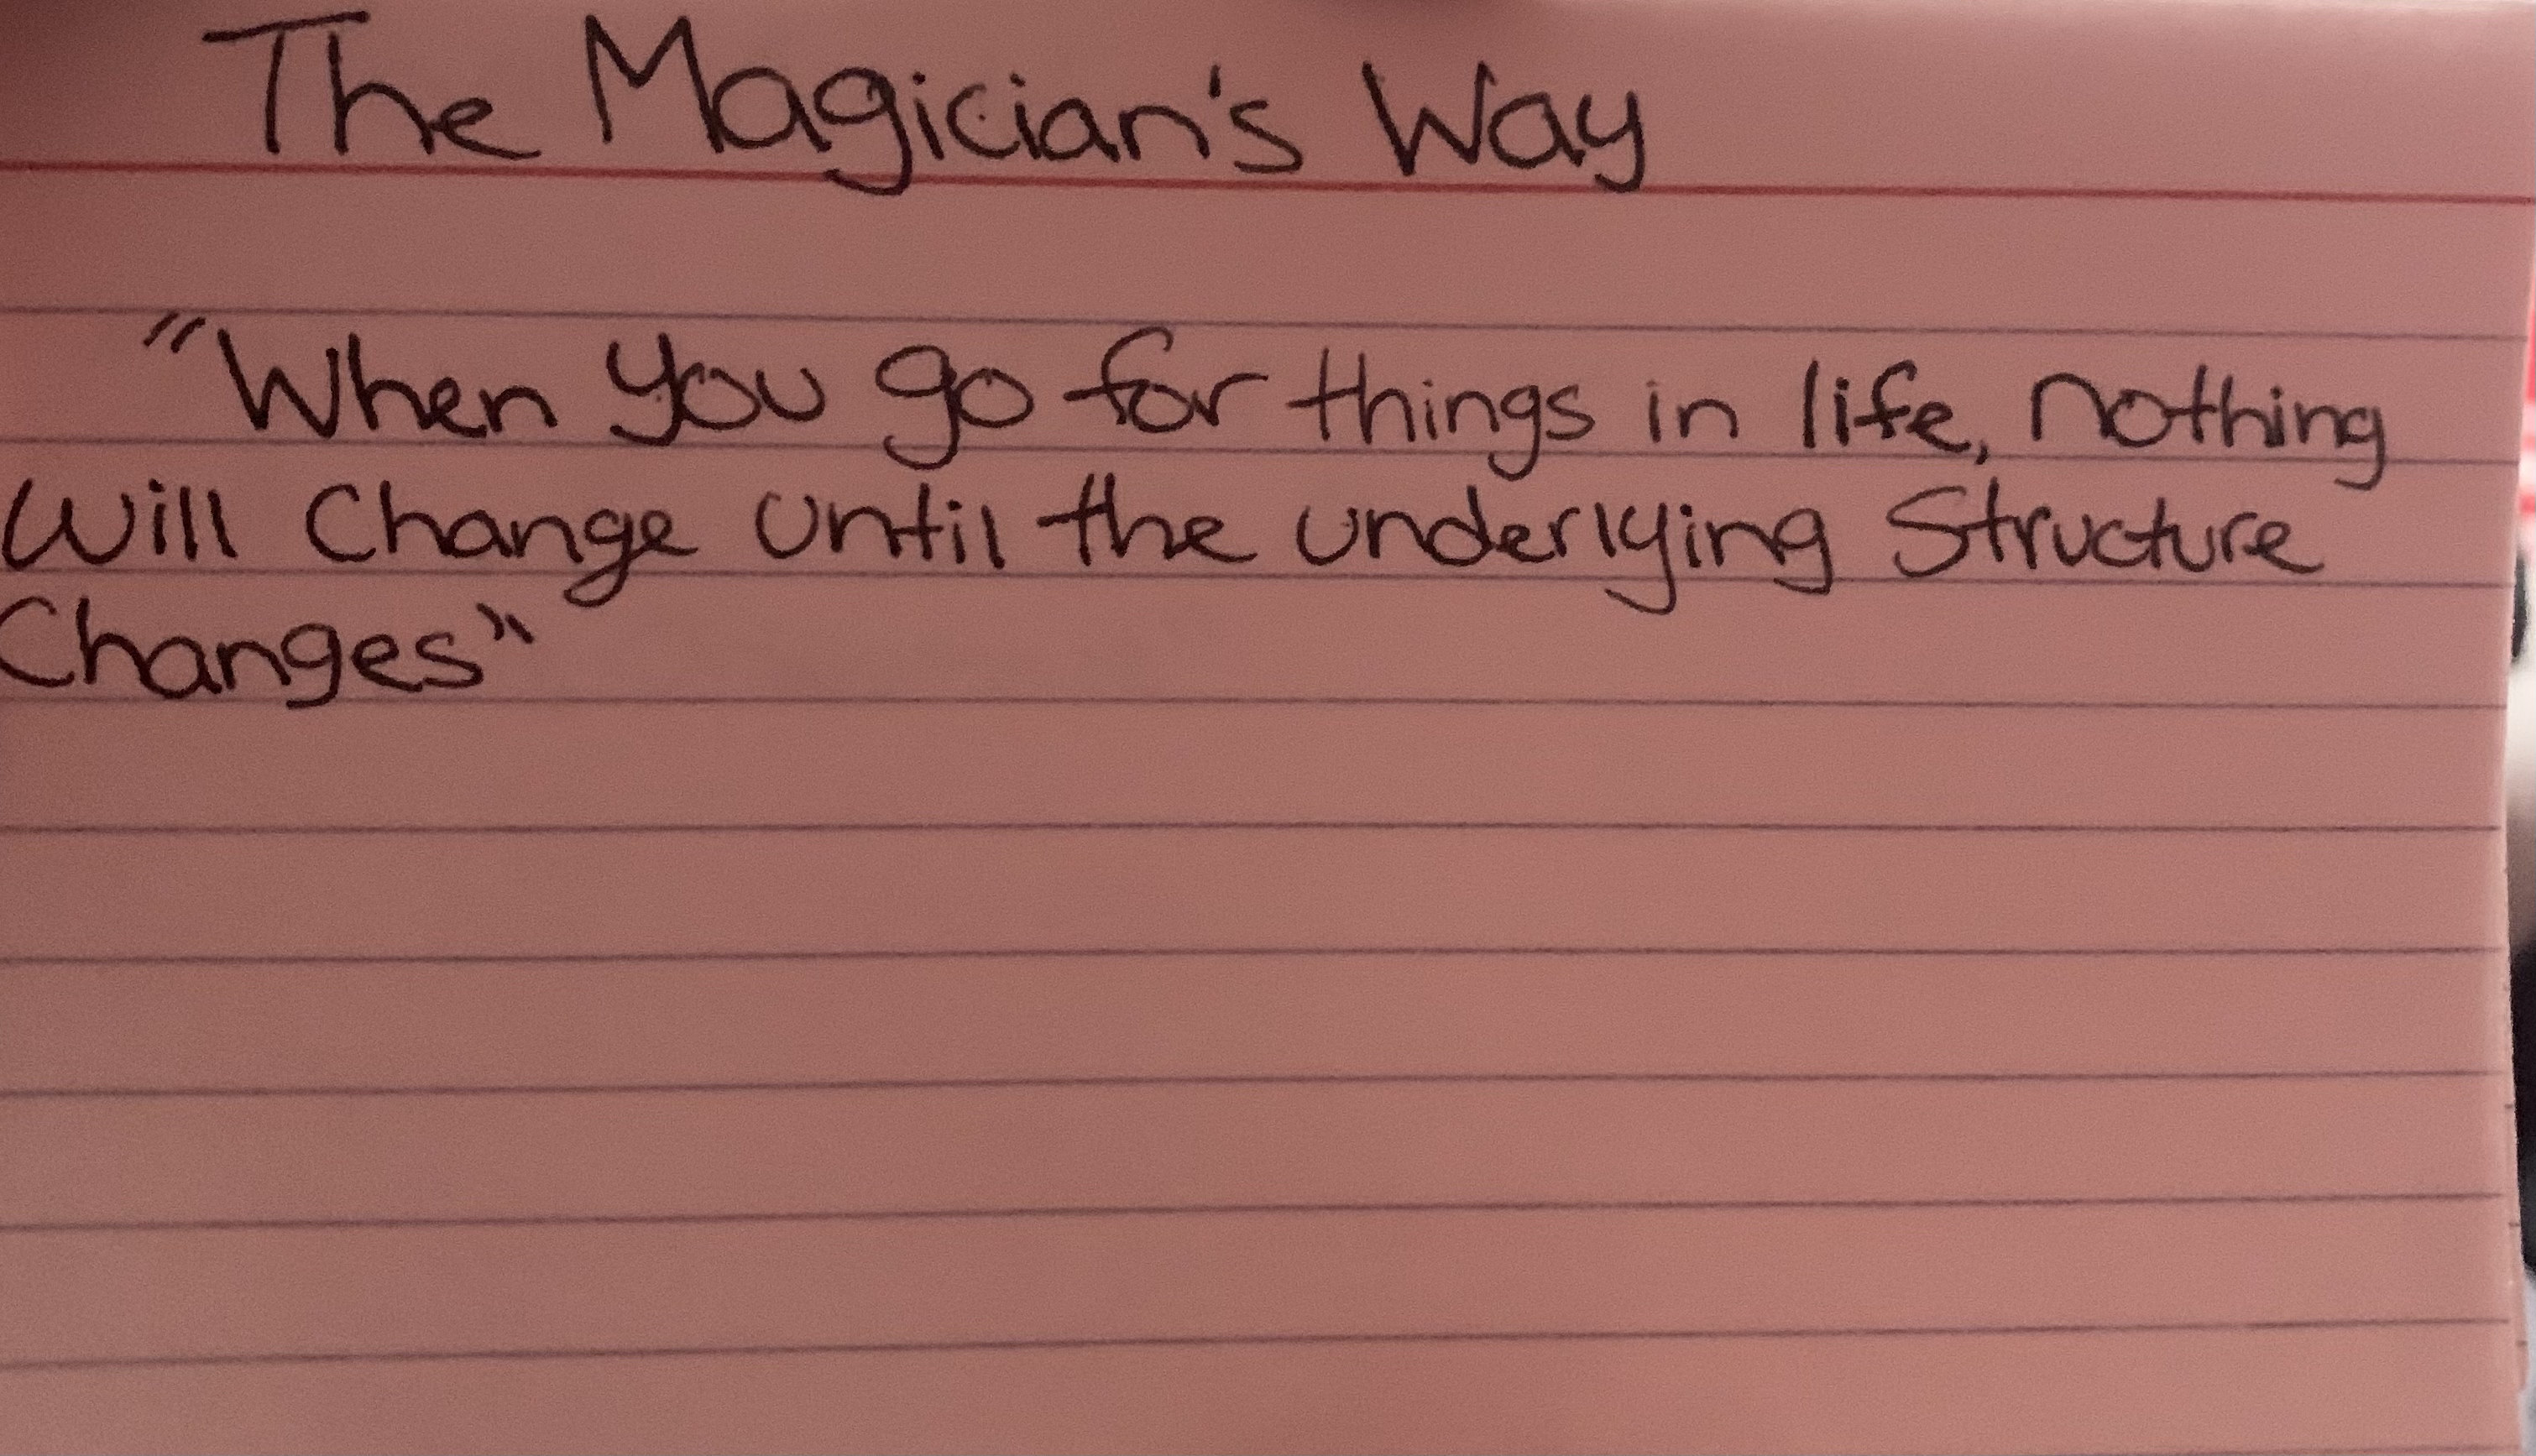 The Magician's Way
"When you go for things in life, nothing
Will Change until the underlying Structure
Changes"